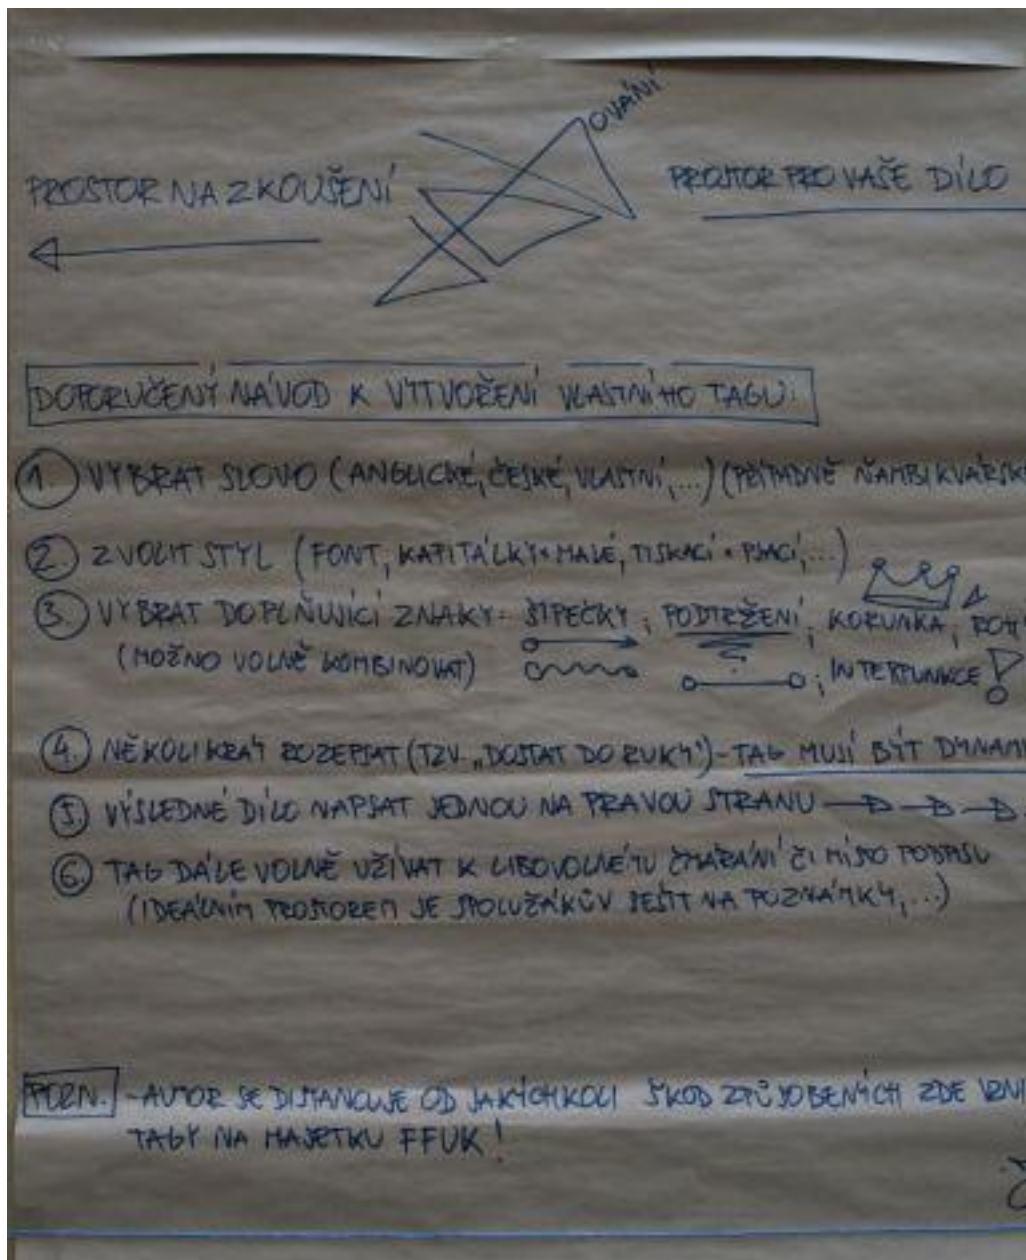 OVÁNÍ
PROSTOR NA ZKOUŠENÍ
PROSTOR PRO VAŠE DÍLO
DOPORUČENÝ NÁVOD K VYTVOŘENÍ VLASTNÍHO TAGU:
1. VYBRAT SLOVO (ANGLICKÉ, ČESKÉ, VLASTNÍ, ...) (PŘÍPADNĚ ŇAMBIKVÁRSK
2. ZVOLIT STYL (FONT, KAPITÁLKY × MALÉ, TISKACÍ × PSACÍ, ...)
3. VYBRAT DOPLŇUJÍCÍ ZNAKY: ŠIPEČKY; PODTRŽENÍ; KORUNKA,
(MOŽNO VOLNĚ KOMBINOVAT) ; INTERPUNKCE
4. NĚKOLIKRÁT ROZEPSAT (TZV. „DOSTAT DO RUKY") - TAG MUSÍ BÝT DYNAMI
5. VÝSLEDNÉ DÍLO NAPSAT JEDNOU NA PRAVOU STRANU
6. TAG DÁLE VOLNĚ UŽÍVAT K LIBOVOLNÉMU ČMÁRÁNÍ ČI MÍSTO PODPISU
(IDEÁLNÍM PROSTOREM JE SPOLUŽÁKŮV SEŠIT NA POZNÁMKY, ...)
POZN. - AUTOR SE DISTANCUJE OD JAKÝCHKOLI ŠKOD ZPŮSOBENÝCH ZDE VZNI
TAGY NA MAJETKU FFUK!